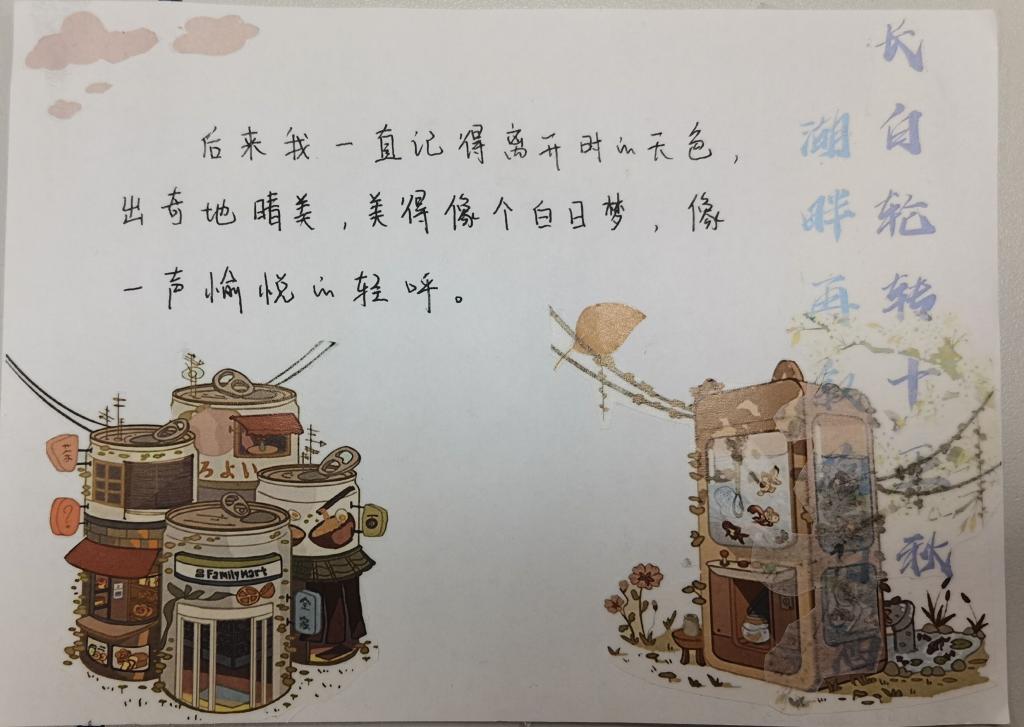 长白轮转十二秋
湖畔再叙
后来我一直记得离开时的天色，
出奇地晴美，美得像个白日梦，像
一声愉悦的轻呼。
ろよい
FamilyMart
全家